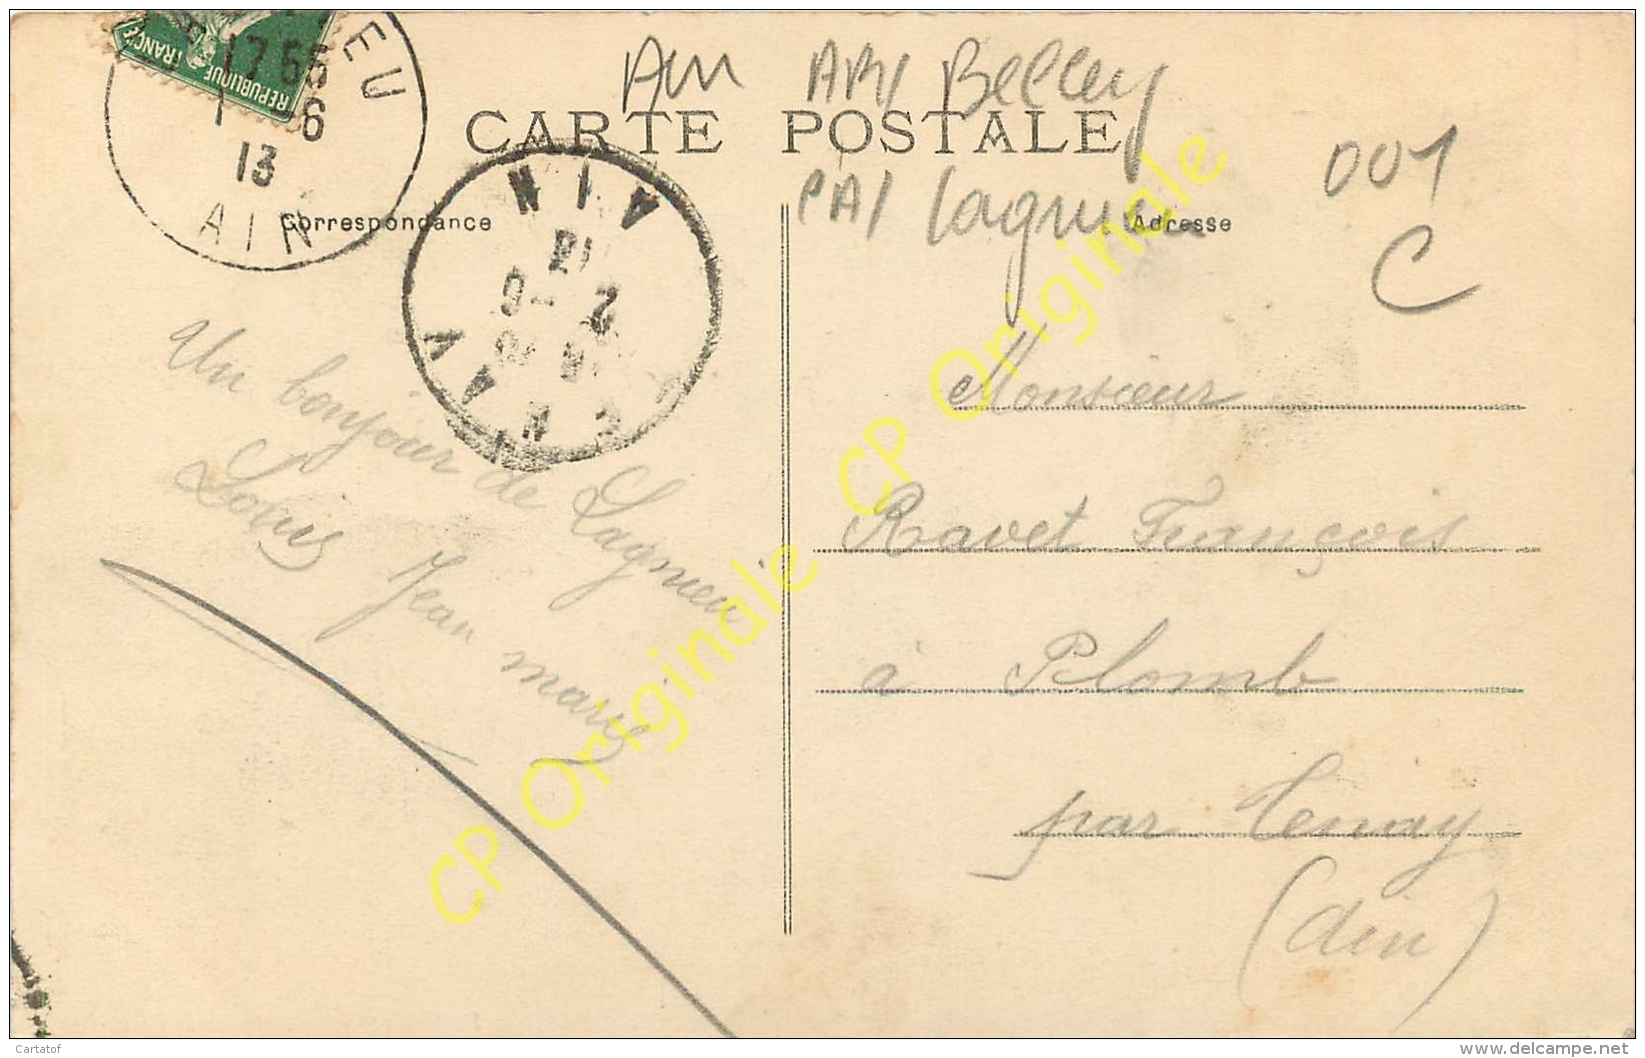 EU
REPUBLIQUE
FRANCE
17 55
1 6
13
AIN
Ain ARR Belley
CARTE POSTALE
CAN Lagnieu
001
C
Correspondance
Adresse
AIN
13
2 - 6
Un bonjour de Lagnieu
Louis Jean marie
Monsieur
Ravet François
à Plomb
par Tenay
(Ain)
CP Originale CP Originale CP Originale
Cartatof
www.delcampe.net